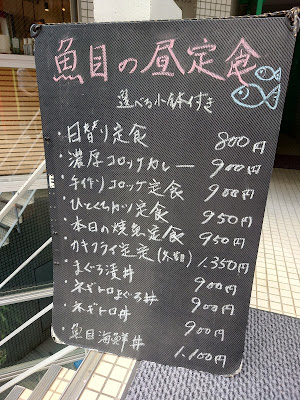 魚目の昼定食
選べる小鉢付き
・日替り定食 800円
・濃厚コロッケカレー 900円
・手作りコロッケ定食 900円
・ひとくちカツ定食 950円
・本日の焼魚定食 950円
・カキフライ定定 1.350円
・まぐろ漬丼 900円
・ネギトロまぐろ丼 900円
・ネギトロ丼 900円
・魚目海鮮丼 1.100円